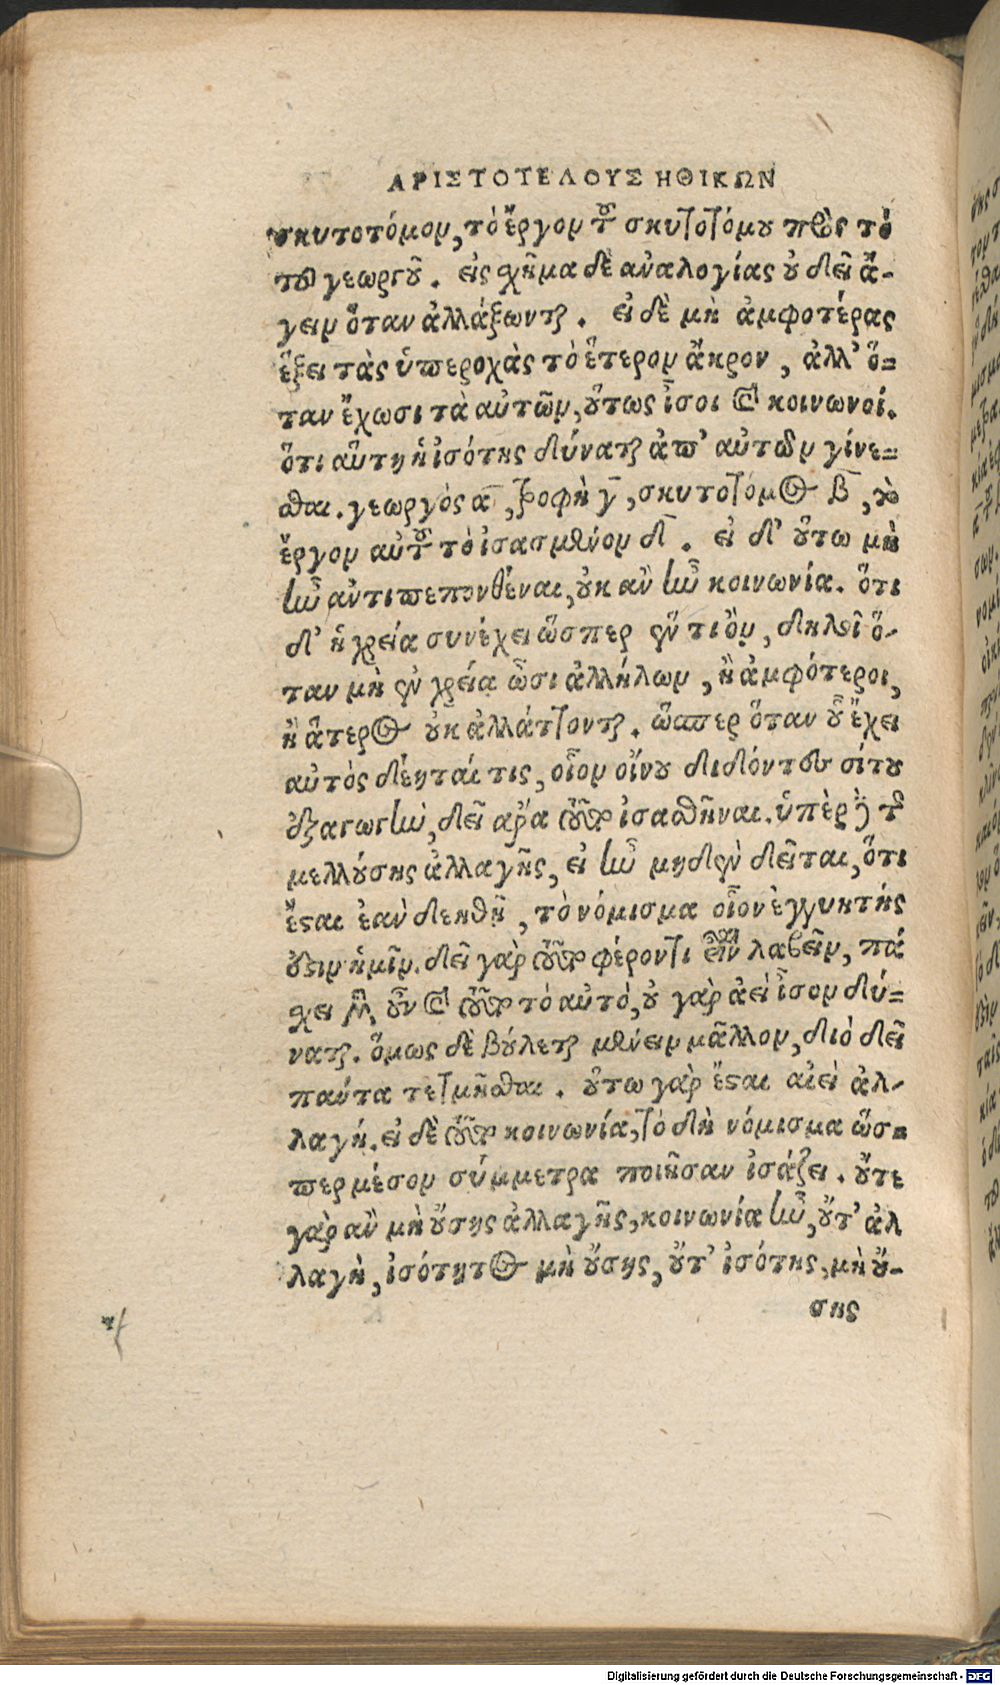 ΑΡΙΣΤΟΤΕΛΟΥΣ ΗΘΙΚΩΝ
σκυτοτόμον, τὸ ἔργον τοῦ σκυτοτόμου πρὸς τὸ
τοῦ γεωργοῦ. εἰς σχῆμα δὲ ἀναλογίας οὐ δεῖ ἄ-
γειν ὅταν ἀλλάξωνται. εἰ δὲ μὴ ἀμφοτέρας
ἕξει τὰς ὑπεροχὰς τὸ ἕτερον ἄκρον, ἀλλ' ὅ=
ταν ἔχωσι τὰ αὐτῶν, οὕτως ἴσοι καὶ κοινωνοί.
ὅτι αὕτη ἡ ἰσότης δύναται ἀπ' αὐτῶν γίνε=
σθαι. γεωργὸς α, τροφὴ γ, σκυτοτόμος β, τὸ
ἔργον αὐτοῦ τὸ ἰσασμένον δ. εἰ δ' οὕτω μὴ
ἦν ἀντιπεπονθέναι, οὐκ ἂν ἦν κοινωνία. ὅτι
δ' ἡ χρεία συνέχει ὥσπερ ἕν τι ὂν, δηλοῖ ὅ-
ταν μὴ ἐν χρείᾳ ὦσι ἀλλήλων, ἢ ἀμφότεροι,
ἢ ἅτερος οὐκ ἀλλάττονται. ὥσπερ ὅταν οὗ ἔχει
αὐτὸς δέηταί τις, οἷον οἴνου διδόντες σίτου
ἐξαγωγὴν, δεῖ ἄρα τοῦτο ἰσασθῆναι. ὑπὲρ δὲ τῆς
μελλούσης ἀλλαγῆς, εἰ νῦν μηδὲν δεῖται, ὅτι
ἔσται ἐὰν δεηθῇ, τὸ νόμισμα οἷον ἐγγυητής
ἐστιν ἡμῖν. δεῖ γὰρ τοῦτο φέροντι εἶναι λαβεῖν, πά
χει μὲν οὖν καὶ τοῦτο τὸ αὐτό, οὐ γὰρ ἀεὶ ἴσον δύ=
ναται. ὅμως δὲ βούλεται μένειν μᾶλλον, διὸ δεῖ
πάντα τετιμῆσθαι. οὕτω γὰρ ἔσται αἰεὶ ἀλ-
λαγή. εἰ δὲ τοῦτο κοινωνία, τὸ δὴ νόμισμα ὥσ=
περ μέσον σύμμετρα ποιῆσαν ἰσάζει. οὔτε
γὰρ ἂν μὴ οὔσης ἀλλαγῆς, κοινωνία ἦν, οὔτ' ἀλ
λαγὴ, ἰσότητος μὴ οὔσης, οὔτ' ἰσότης, μὴ οὔ-
σης
Digitalisierung gefördert durch die Deutsche Forschungsgemeinschaft - DFG